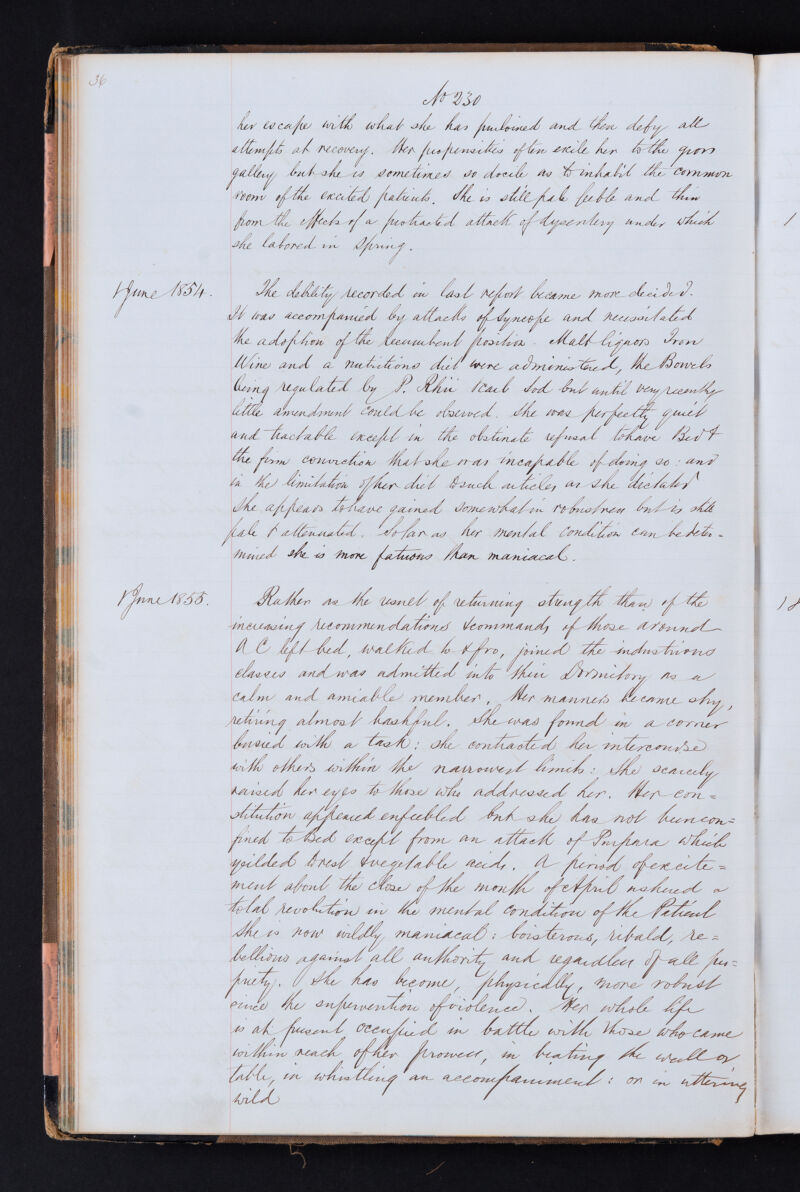 36
No 230
her escape with what she has purloined and then defy all
attempts at recovery. Her propensities often exile her to the
gallery but she is sometimes so docile as to inhabit the common
room of the excited patients. She is still pale feeble and thin
from the effects of a protracted attack of dysentery under which
she labored in Spring.
1 June 1854. The debility recorded in last report became more decided.
It was accompanied by attacks of Syncope and necessitated
the adoption of the recumbent position. Malt liquors Iron
Wine and a nutritious diet were administered, the Bowels
being regulated by P. Rhii &carb Sod but until very recently
little amendment could be observed. She was perfectly quiet
and tractable except in the obstinate refusal to have Bed &
the firm conviction that she was incapable of doing so: and
in the limitation of her diet to such articles as she dictated
She appears to have gained somewhat in robustness but is still
pale & attenuated. So far as her mental condition can be deter-
mined she is more fatuous than maniacal.
1 June 1855. Rather as the result of returning strength than of the
increasing recommendations &commands of those around
A C left bed, walked to & fro, joined the industrious
classes and was admitted into their Dormitory as a
calm and amiable member. Her manners became shy,
retiring almost bashful. She was found in a corner
busied with a task: she contracted her intercourse
with others within the narrowest limits: She scarcely
raised her eyes to those who addressed her. Her con=
stitution appeared enfeebled but she has not been con=
fined to Bed except from an attack of Purpura which
yeilded to rest &vegetable acids. A period of excite=
ment about the close of the month of April ushered a
total revolution in the mental condition of the Patient
She is now wildly maniacal: boisterous, ribald, re=
bellious against all authority and regardless of all pro=
priety. She has become, physically, more robust
since the supervention of violence. Her whole life
is at present occupied in battle with those who came
within reach of her prowess, in beating the wall or
table, in whistling an accompaniment: or in uttering
wild